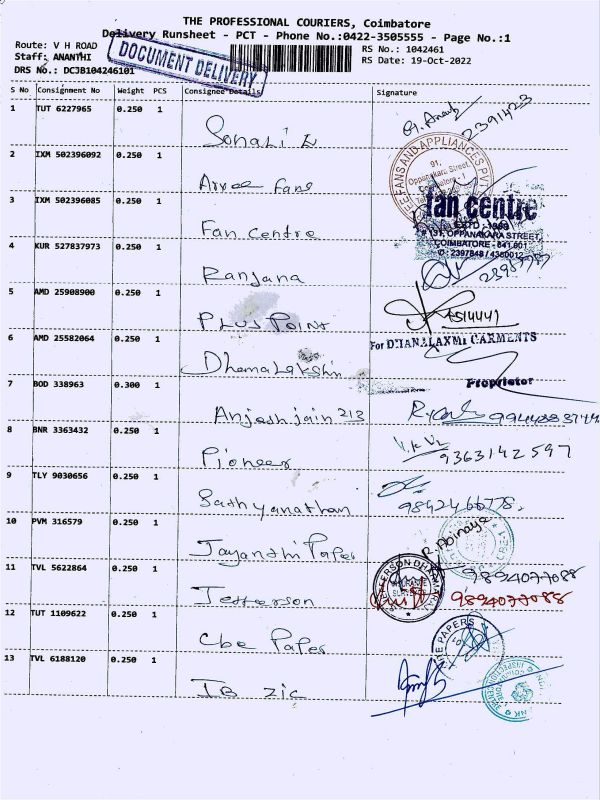 THE PROFESSIONAL COURIERS, Coimbatore
Delivery Runsheet - PCT - Phone No.:0422-3505555 - Page No.:1
Route: V H ROAD
RS No.: 1042461
Staff: ANANTHI
DOCUMENT DELIVERY
RS Date: 19-Oct-2022
DRS No.: DCJB104246101
S No Consignment No Weight PCS Consignee Details Signature
1 TUT 6227965 0.250 1
2391423
Sonali
2 IXM 502396092 0.250 1
FANS AND APPLIANCES PVT
91,
Oppanakara Street,
Arvee Fans
3 IXM 502396085 0.250 1
fan centre
ESTD : 1968
91, OPPANAKARA STREET
COIMBATORE - 641 001
Fan Centre
4 KUR 527837973 0.250 1
2397848 / 4380012
Ranjana
5 AMD 25908900 0.250 1
Plus Point
6 AMD 25582064 0.250 1
For DHANALAXMI GARMENTS
Dhanalakshmi
7 BOD 338963 0.300 1
Proprietor
Anjesh jain 213
8 BNR 3363432 0.250 1
9363142597
Pioneer
9 TLY 9030656 0.250 1
Sathyanathan
10 PVM 316579 0.250 1
R. Abinaya
Jayanthi Paper
11 TVL 5622864 0.250 1
9894077088
Jefferson
9894077088
12 TUT 1109622 0.250 1
PAPERS
Cbe Paper
13 TVL 6188120 0.250 1
IB zic